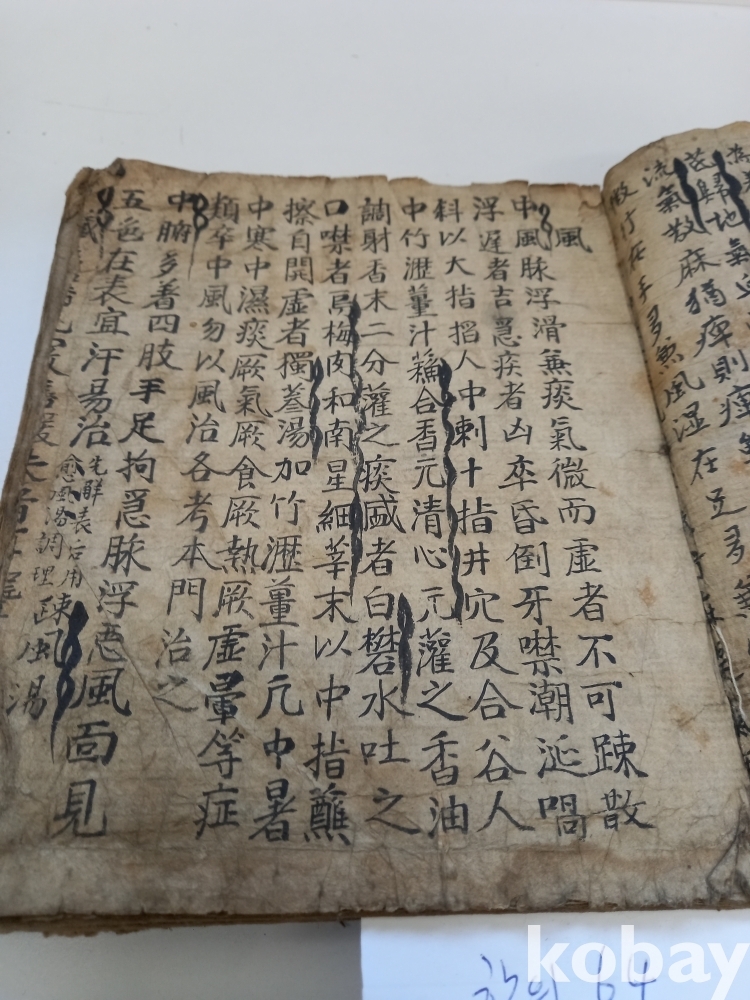 芪歸地氣
流氣散麻猶痺則
手多兼風湿在足多
風
中風脉浮滑蒹痰氣微而虛者不可踈散
浮遲者吉急疾者凶卒昏倒牙噤潮涎喎
斜以大指搯人中刺十指井穴及合谷人
中竹瀝薑汁蘓合香元清心元灌之香油
調射香末二分灌之痰盛者白礬水吐之
口噤者烏梅肉和南星細莘末以中指蘸
擦自開虛者獨蔘湯加竹瀝薑汁元中暑
中寒中濕痰厥氣厥食厥熱厥虛暈等症
類卒中風勿以風治各考本門治之
中腑多著四肢手足拘急脉浮惡風面見
五色在表宜汗易治
先觧表后用踈風湯
愈風湯調理
kobay
64